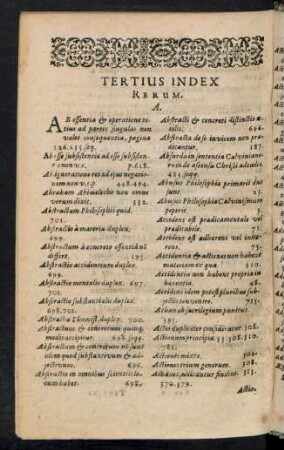 TERTIUS INDEX
RERUM.
A.
AB essentia & operatione totius ad partes singulas non
valet consequentia, pagina
126.235. seq.
Ab esse subsistentia ad esse subsisten
p. 628.
Ab ignoratione rei ad ejus negationem non v. c. p. 448. 494.
verum dixit. 132.
Abstractum Philosophis quid.
701.
Abstractio à materia duplex.
699.
Abstractum à concreto essentia
differt. 195.
Abstractio accidentium duplex.
699.
Abstractio mentalis duplex. 697.
702.
Abstractio substantialis duplex.
698. 701.
Abstractio Thomist. duplex. 700.
Abstractum & concretum quotmodis accipitur. 698. seqq.
Abstractum & concretum
idem quod substantivum & adjectivum. 700.
Abstractio in omnibus scientiis locum habet. 698.
Abstracti & concreti distinctio utilis. 694.
Abstracta de se invicem non praedicantur. 187.
Absurda in sententia Calvinianorum
403. seq.
Abusus Philosophiae primarii duo
sunt. 23.
Abusus Philosophiae Calvinismum
peperit.
Accidens est praedicamentale vel
praedicabile. 71.
Accidens est adhaerens vel inhaerens. 75.
Accidentia & actiones non habent
materiam ex qua 110.
Accidentia non habent propria inhaerentia. 48.
Accidens idem potest pluribus subjectis convenire. 715.
Achan ob sacrilegium punitur.
193.
Actio dupliciter consideratur. 308.
Actionum principia. 35. 308. 310.
782.
Actiones mixtae. 300.
Actiones miraculorum. 308.
Actiones, initiantur finibus. 353.
370. 379.
Actio-